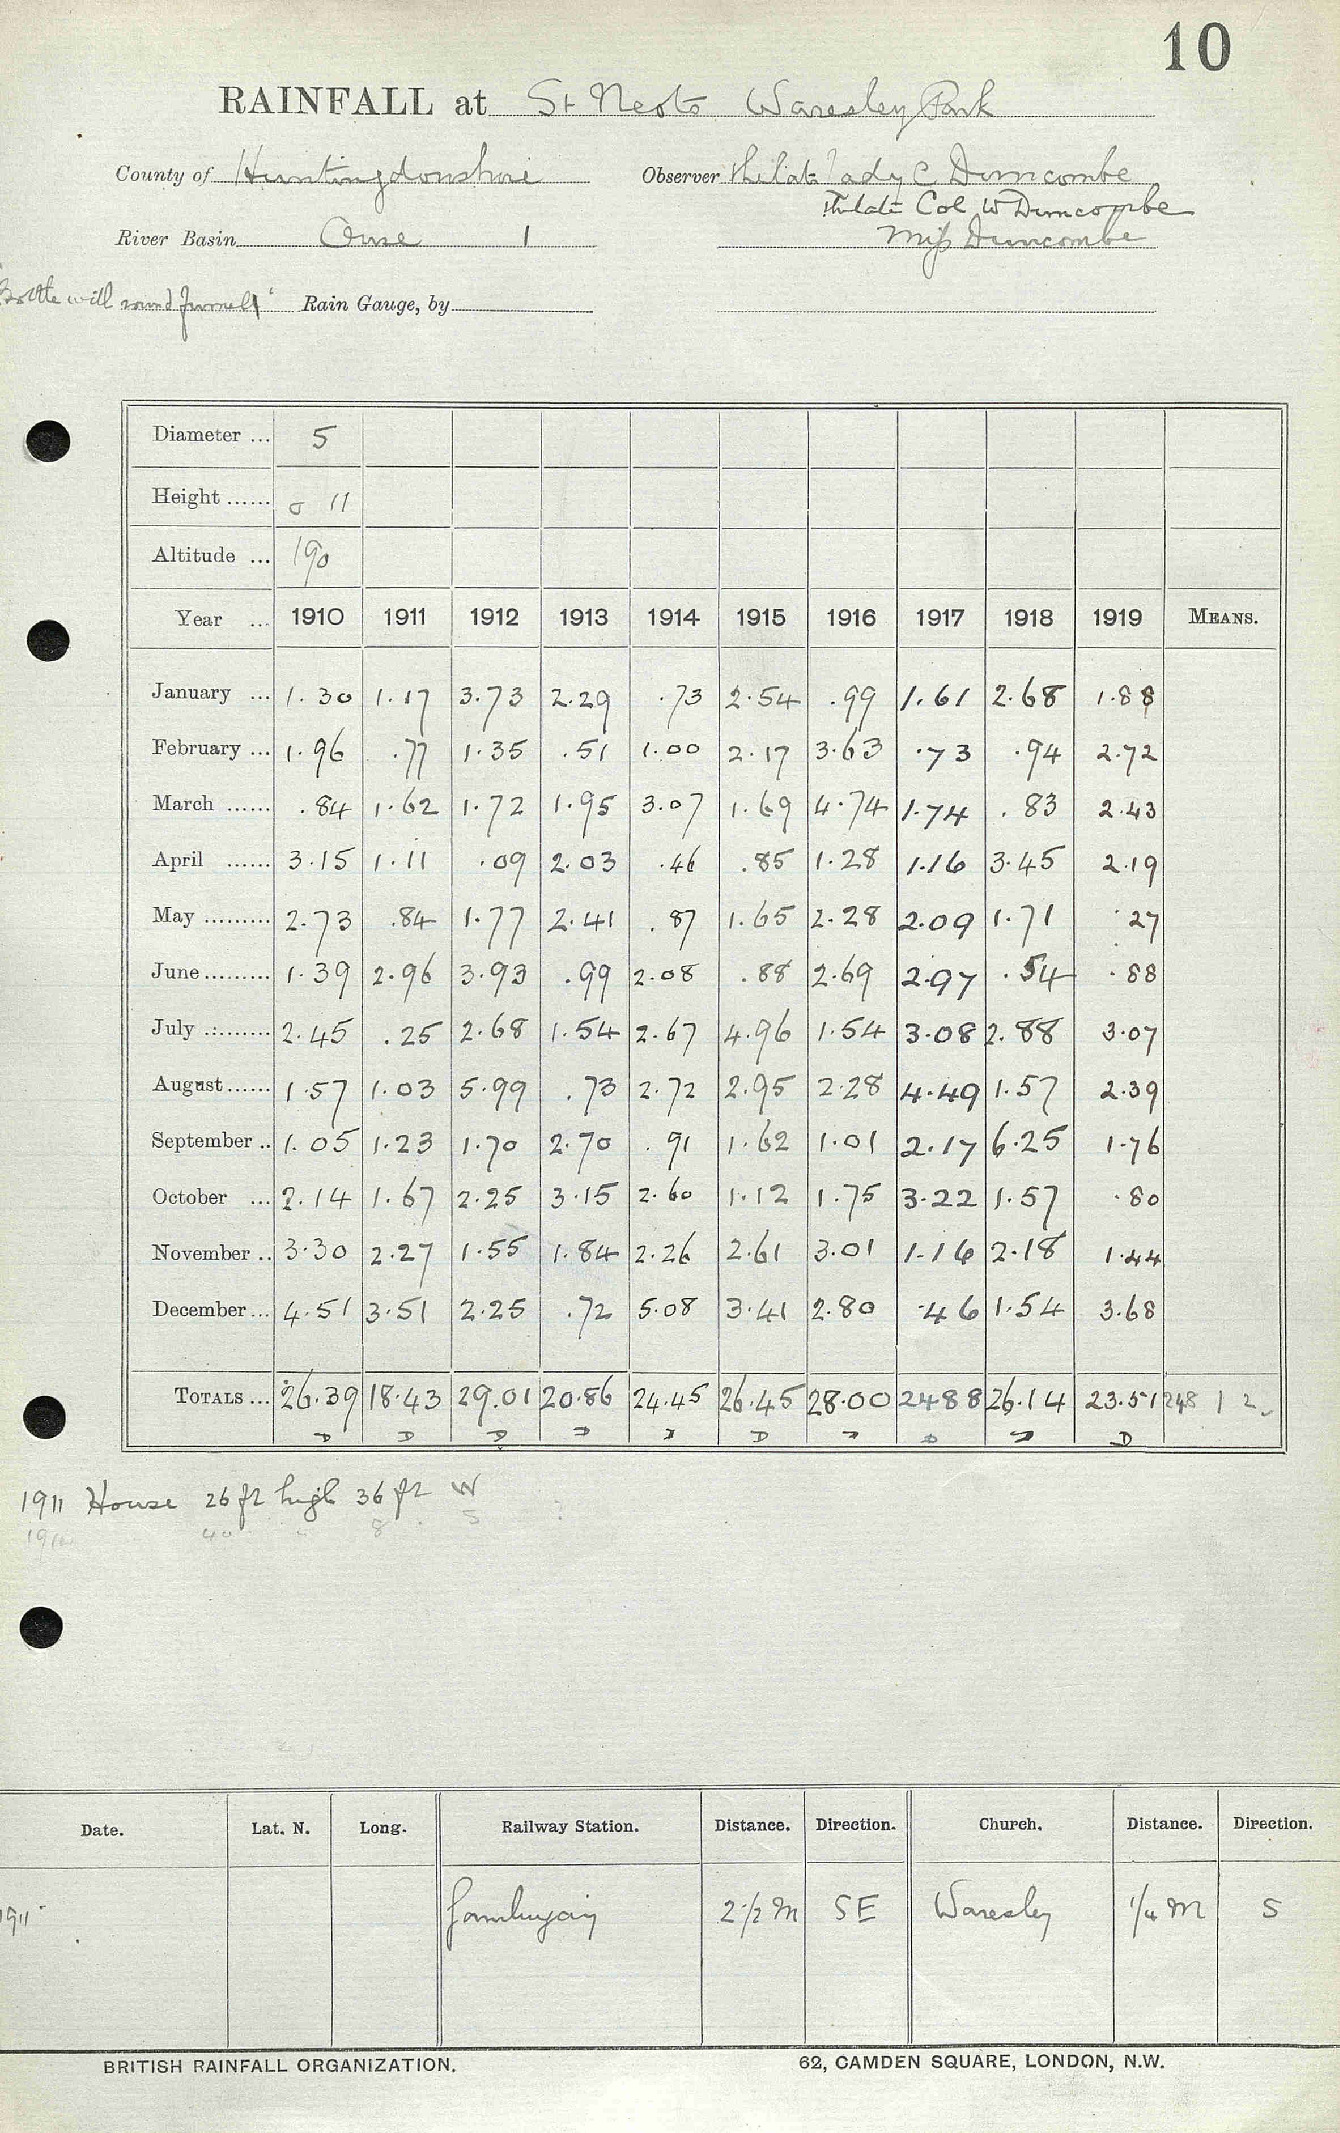 10
RAINFALL at St Neots Waresley Park
County of Huntingdonshire Observer The late Lady C Duncombe
The late Col W Duncombe
River Basin Ouse 1 Miss Duncombe
"Bottle with round funnel" Rain Gauge, by
Diameter ... 5
Height ...... 0 11
Altitude ... 190
Year ... 1910 1911 1912 1913 1914 1915 1916 1917 1918 1919 MEANS.
January ... 1.30 1.17 3.73 2.29 .73 2.54 .99 1.61 2.68 1.88
February ... 1.96 .77 1.35 .51 1.00 2.17 3.63 .73 .94 2.72
March ...... .84 1.62 1.72 1.95 3.07 1.69 4.74 1.74 .83 2.43
April ...... 3.15 1.11 .09 2.03 .46 .85 1.28 1.16 3.45 2.19
May ......... 2.73 .84 1.77 2.41 .87 1.65 2.28 2.09 1.71 .27
June ......... 1.39 2.96 3.93 .99 2.08 .88 2.69 2.97 .54 .88
July ......... 2.45 .25 2.68 1.54 2.67 4.96 1.54 3.08 2.88 3.07
August ...... 1.57 1.03 5.99 .73 2.72 2.95 2.28 4.49 1.57 2.39
September .. 1.05 1.23 1.70 2.70 .91 1.62 1.01 2.17 6.25 1.76
October ... 2.14 1.67 2.25 3.15 2.60 1.12 1.75 3.22 1.57 .80
November .. 3.30 2.27 1.55 1.84 2.26 2.61 3.01 1.16 2.18 1.44
December ... 4.51 3.51 2.25 .72 5.08 3.41 2.80 .46 1.54 3.68
TOTALS ... 26.39 18.43 29.01 20.86 24.45 26.45 28.00 24 88 26.14 23.51 248 1 2
1911 House 26 ft high 36 ft W
Date. Lat. N. Long. Railway Station. Distance. Direction. Church. Distance. Direction.
1911 Gamlingay 2 1/2 M SE Waresley 1/4 M S
BRITISH RAINFALL ORGANIZATION. 62, CAMDEN SQUARE, LONDON, N.W.